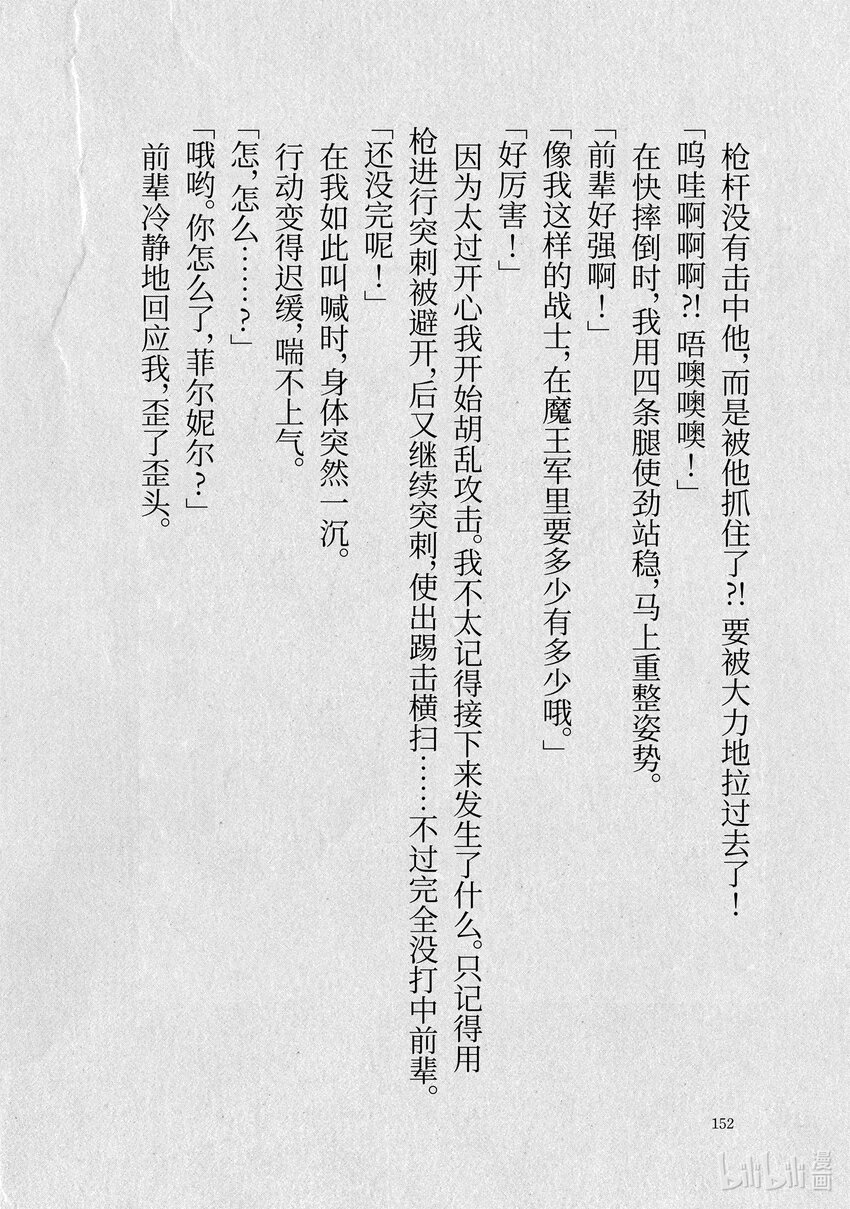 枪杆没有击中他，而是被他抓住了?! 要被大力地拉过去了！
「呜哇啊啊啊?! 唔噢噢噢！」
在快摔倒时，我用四条腿使劲站稳，马上重整姿势。
「前辈好强啊！」
「像我这样的战士，在魔王军里要多少有多少哦。」
「好厉害！」
因为太过开心我开始胡乱攻击。我不太记得接下来发生了什么。只记得用
枪进行突刺被避开，后又继续突刺，使出踢击横扫……不过完全没打中前辈。
「还没完呢！」
在我如此叫喊时，身体突然一沉。
行动变得迟缓，喘不上气。
「怎，怎么……?」
「哦哟。你怎么了，菲尔妮尔？」
前辈冷静地回应我，歪了歪头。
152
bilibili漫画